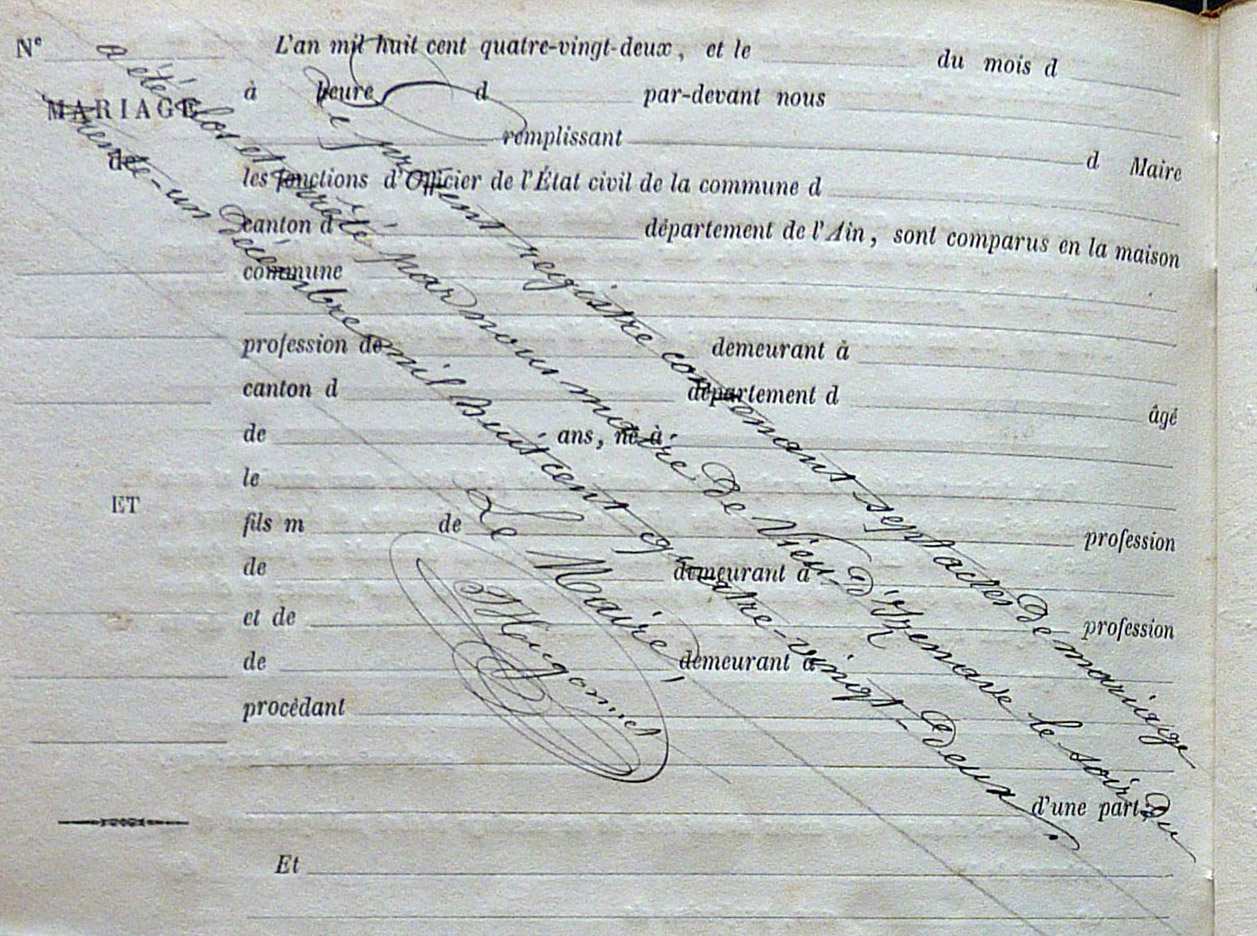 Nº
MARIAGE
de
ET
L'an mil huit cent quatre-vingt-deux, et le du mois d
à heure d par-devant nous
remplissant d Maire
les fonctions d'Officier de l'État civil de la commune d
canton d département de l'Ain, sont comparus en la maison
commune
profession de demeurant à
canton d département d âgé
de ans, né à
le
fils m de profession
de demeurant à
et de profession
de demeurant à
procédant
d'une part,
Et
Le présent registre contenant sept actes de mariage
a été clos et arrêté par nous maire de Vieu-d'Izenave le soir du
trente-un Décembre mil huit cent quatre-vingt-deux.
Le Maire,